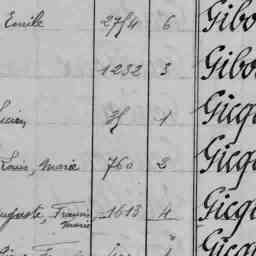 Emile 2754 6 Gibo
1232 3 Gibo
1 Gicq
Louis, Marie 760 2 Gicq
Auguste, Francis Marie 1613 4 Gicq
Gicq